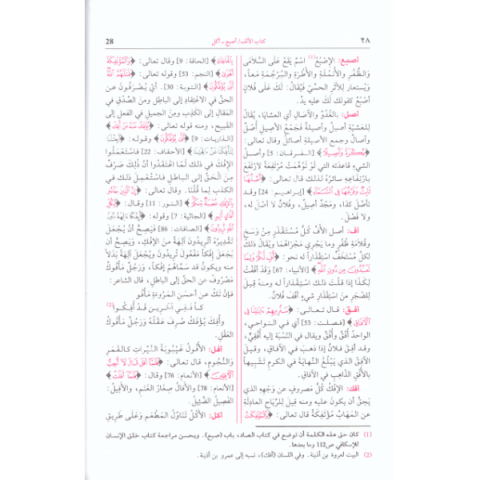 ٢٨
كتاب الألف: أصبع - أكل
28
أصبع: الإِصْبَعُ(١) اسْمٌ يَقَعُ عَلَى السُّلَامَى
وَالظُّفْرِ وَالْأَنْمُلَةِ وَالْأُطْرَةِ وَالْبُرْجُمَةِ مَعاً،
وَيُسْتَعَارُ لِلْأَثَرِ الْحِسِّيِّ فَيُقَالُ: لَكَ عَلَى فُلَانٍ
أُصْبُعٌ كَقَوْلِكَ لَكَ عَلَيْهِ يَدٌ.
أصل: بِالْغُدُوِّ وَالْآصَالِ أَيِ الْعَشَايَا، يُقَالُ
لِلْعَشِيَّةِ أَصِيلٌ وَأَصِيلَةٌ فَجَمْعُ الْأَصِيلِ أُصُلٌ
وَآصَالٌ وَجَمْعُ الْأَصِيلَةِ أَصَائِلُ وَقَالَ تَعَالَى:
﴿بُكْرَةً وَأَصِيلًا﴾ [الفرقان: 5] وَأَصْلُ
الشَّيْءِ قَاعِدَتُهُ الَّتِي لَوْ تُوُهِّمَتْ مُرْتَفِعَةً لَارْتَفَعَ
بِارْتِفَاعِهِ سَائِرُهُ لِذَلِكَ قَالَ تَعَالَى: ﴿أَصْلُهَا
ثَابِتٌ وَفَرْعُهَا فِي السَّمَاءِ﴾ [إبراهيم: 24] وَقَدْ
تَأَصَّلَ كَذَا، وَمَجْدٌ أَصِيلٌ، وَفُلَانٌ لَا أَصْلَ لَهُ،
وَلَا فَصْلَ.
أف: أَصْلُ الْأُفِّ كُلُّ مُسْتَقْذَرٍ مِنْ وَسَخٍ
وَقُلَامَةِ ظُفْرٍ وَمَا يَجْرِي مَجْرَاهُمَا وَيُقَالُ ذَلِكَ
لِكُلِّ مُسْتَخَفٍّ اسْتِقْذَاراً لَهُ نَحْوُ: ﴿أُفٍّ لَكُمْ وَلِمَا
تَعْبُدُونَ مِنْ دُونِ اللَّهِ﴾ [الأنبياء: 67] وَقَدْ أَفَّفْتُ
لِكَذَا إِذَا قُلْتَ ذَلِكَ اسْتِقْذَاراً لَهُ وَمِنْهُ قِيلَ
لِلضَّجَرِ مِنِ اسْتِقْذَارِ شَيْءٍ أَفَّفَ فُلَانٌ.
أفق: قَالَ تَعَالَى: ﴿سَنُرِيهِمْ آيَاتِنَا فِي
الْآفَاقِ﴾ [فصلت: 53] أَيْ فِي النَّوَاحِي،
الْوَاحِدُ أُفُقٌ وَأُفْقٌ وَيُقَالُ فِي النِّسْبَةِ إِلَيْهِ أُفُقِيٌّ،
وَقَدْ أَفَقَ فُلَانٌ إِذَا ذَهَبَ فِي الْآفَاقِ، وَقِيلَ
الْآفِقُ الَّذِي يَبْلُغُ النِّهَايَةَ فِي الْكَرَمِ تَشْبِيهاً
بِالْأُفُقِ الذَّاهِبِ فِي الْآفَاقِ.
أفك: الْإِفْكُ كُلُّ مَصْرُوفٍ عَنْ وَجْهِهِ الَّذِي
يَحِقُّ أَنْ يَكُونَ عَلَيْهِ وَمِنْهُ قِيلَ لِلرِّيَاحِ الْعَادِلَةِ
عَنِ الْمَهَابِّ مُؤْتَفِكَةٌ قَالَ تَعَالَى: ﴿وَالْمُؤْتَفِكَاتُ
بِالْخَاطِئَةِ﴾ [الحاقة: 9] وَقَالَ تَعَالَى: ﴿وَالْمُؤْتَفِكَةَ
أَهْوَى﴾ [النجم: 53] وَقَوْلُهُ تَعَالَى: ﴿قَاتَلَهُمُ اللَّهُ
أَنَّى يُؤْفَكُونَ﴾ [التوبة: 30]. أَيْ يُصْرَفُونَ عَنِ
الْحَقِّ فِي الِاعْتِقَادِ إِلَى الْبَاطِلِ وَمِنَ الصِّدْقِ فِي
الْمَقَالِ إِلَى الْكَذِبِ وَمِنَ الْجَمِيلِ فِي الْفِعْلِ إِلَى
الْقَبِيحِ، وَمِنْهُ قَوْلُهُ تَعَالَى: ﴿يُؤْفَكُ عَنْهُ مَنْ أُفِكَ﴾
[الذاريات: 9] ﴿أَنَّى يُؤْفَكُونَ﴾ وَقَوْلُهُ: ﴿أَجِئْتَنَا
لِتَأْفِكَنَا عَنْ آلِهَتِنَا﴾ [الأحقاف: 22] فَاسْتَعْمَلُوا
الْإِفْكَ فِي ذَلِكَ لَمَّا اعْتَقَدُوا أَنَّ ذَلِكَ صَرْفٌ
مِنَ الْحَقِّ إِلَى الْبَاطِلِ فَاسْتُعْمِلَ ذَلِكَ فِي
الْكَذِبِ لِمَا قُلْنَا. وَقَالَ تَعَالَى: ﴿إِنَّ الَّذِينَ جَاءُوا
بِالْإِفْكِ عُصْبَةٌ مِنْكُمْ﴾ [النور: 11] وَقَالَ: ﴿لِكُلِّ
أَفَّاكٍ أَثِيمٍ﴾ [الجاثية: 7] وَقَوْلُهُ: ﴿أَئِفْكًا آلِهَةً دُونَ
اللَّهِ تُرِيدُونَ﴾ [الصافات: 86] فَيَصِحُّ أَنْ يُجْعَلَ
تَقْدِيرُهُ أَتُرِيدُونَ آلِهَةً مِنَ الْإِفْكِ، وَيَصِحُّ أَنْ
يُجْعَلَ إِفْكاً مَفْعُولَ تُرِيدُونَ وَيُجْعَلَ آلِهَةً بَدَلًا
مِنْهُ وَيَكُونُ قَدْ سَمَّاهُمْ إِفْكاً، وَرَجُلٌ مَأْفُوكٌ
مَصْرُوفٌ عَنِ الْحَقِّ إِلَى الْبَاطِلِ، قَالَ الشَّاعِرُ:
فَإِنْ تَكُ عَنْ أَحْسَنِ الْمُرُوءَةِ مَأْفُوكاً
فَفِي آخَرِينَ قَدْ أُفِكُوا(٢)
وَأُفِكَ يُؤْفَكُ صُرِفَ عَقْلُهُ وَرَجُلٌ مَأْفُوكُ
الْعَقْلِ.
أفل: الْأُفُولُ غَيْبُوبَةُ النَّيِّرَاتِ كَالْقَمَرِ
وَالنُّجُومِ، قَالَ تَعَالَى: ﴿فَلَمَّا أَفَلَ قَالَ لَا أُحِبُّ
الْآفِلِينَ﴾ [الأنعام: 76] وَقَالَ: ﴿فَلَمَّا أَفَلَتْ﴾
[الأنعام: 78] وَالْأَفَالُ صِغَارُ الْغَنَمِ، وَالْأَفِيلُ:
الْفَصِيلُ الضَّئِيلُ.
أكل: الْأَكْلُ تَنَاوُلُ الْمَطْعَمِ وَعَلَى طَرِيقِ
(1) كان حق هذه الكلمة أن توضع في كتاب الصاد، باب (صبع). ويحسن مراجعة كتاب خلق الإنسان
للإسكافي ص112 وما بعدها.
(2) البيت لعروة بن أذينة. وفي اللسان (أفك)، نسبه إلى عمرو بن أذينة.